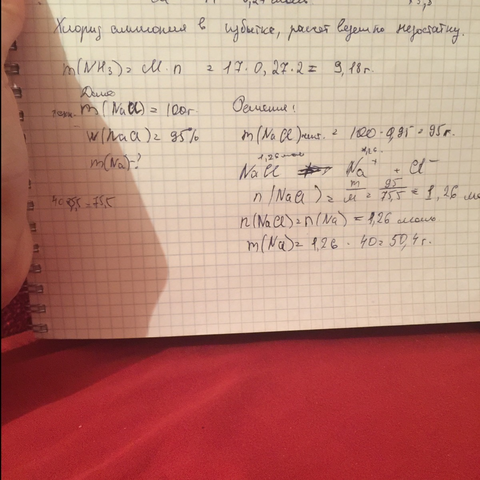 Хлорид аммония в избытке, расчет ведем по недостатку.
m(NH₃) = M · n = 17 · 0,27 · 2 = 9,18 г.
Дано
Решение:
m(NaCl) = 100 г.
w(NaCl) = 95%
m(NaCl)чист. = 100 · 0,95 = 95 г.
m(Na)-?
1,26 моль 1,26
NaCl Na⁺ + Cl⁻
n(NaCl) = m/M = 95/75,5 = 1,26 мо
40 35,5 = 75,5
n(NaCl) = n(Na) = 1,26 моль
m(Na) = 1,26 · 40 = 50,4 г.